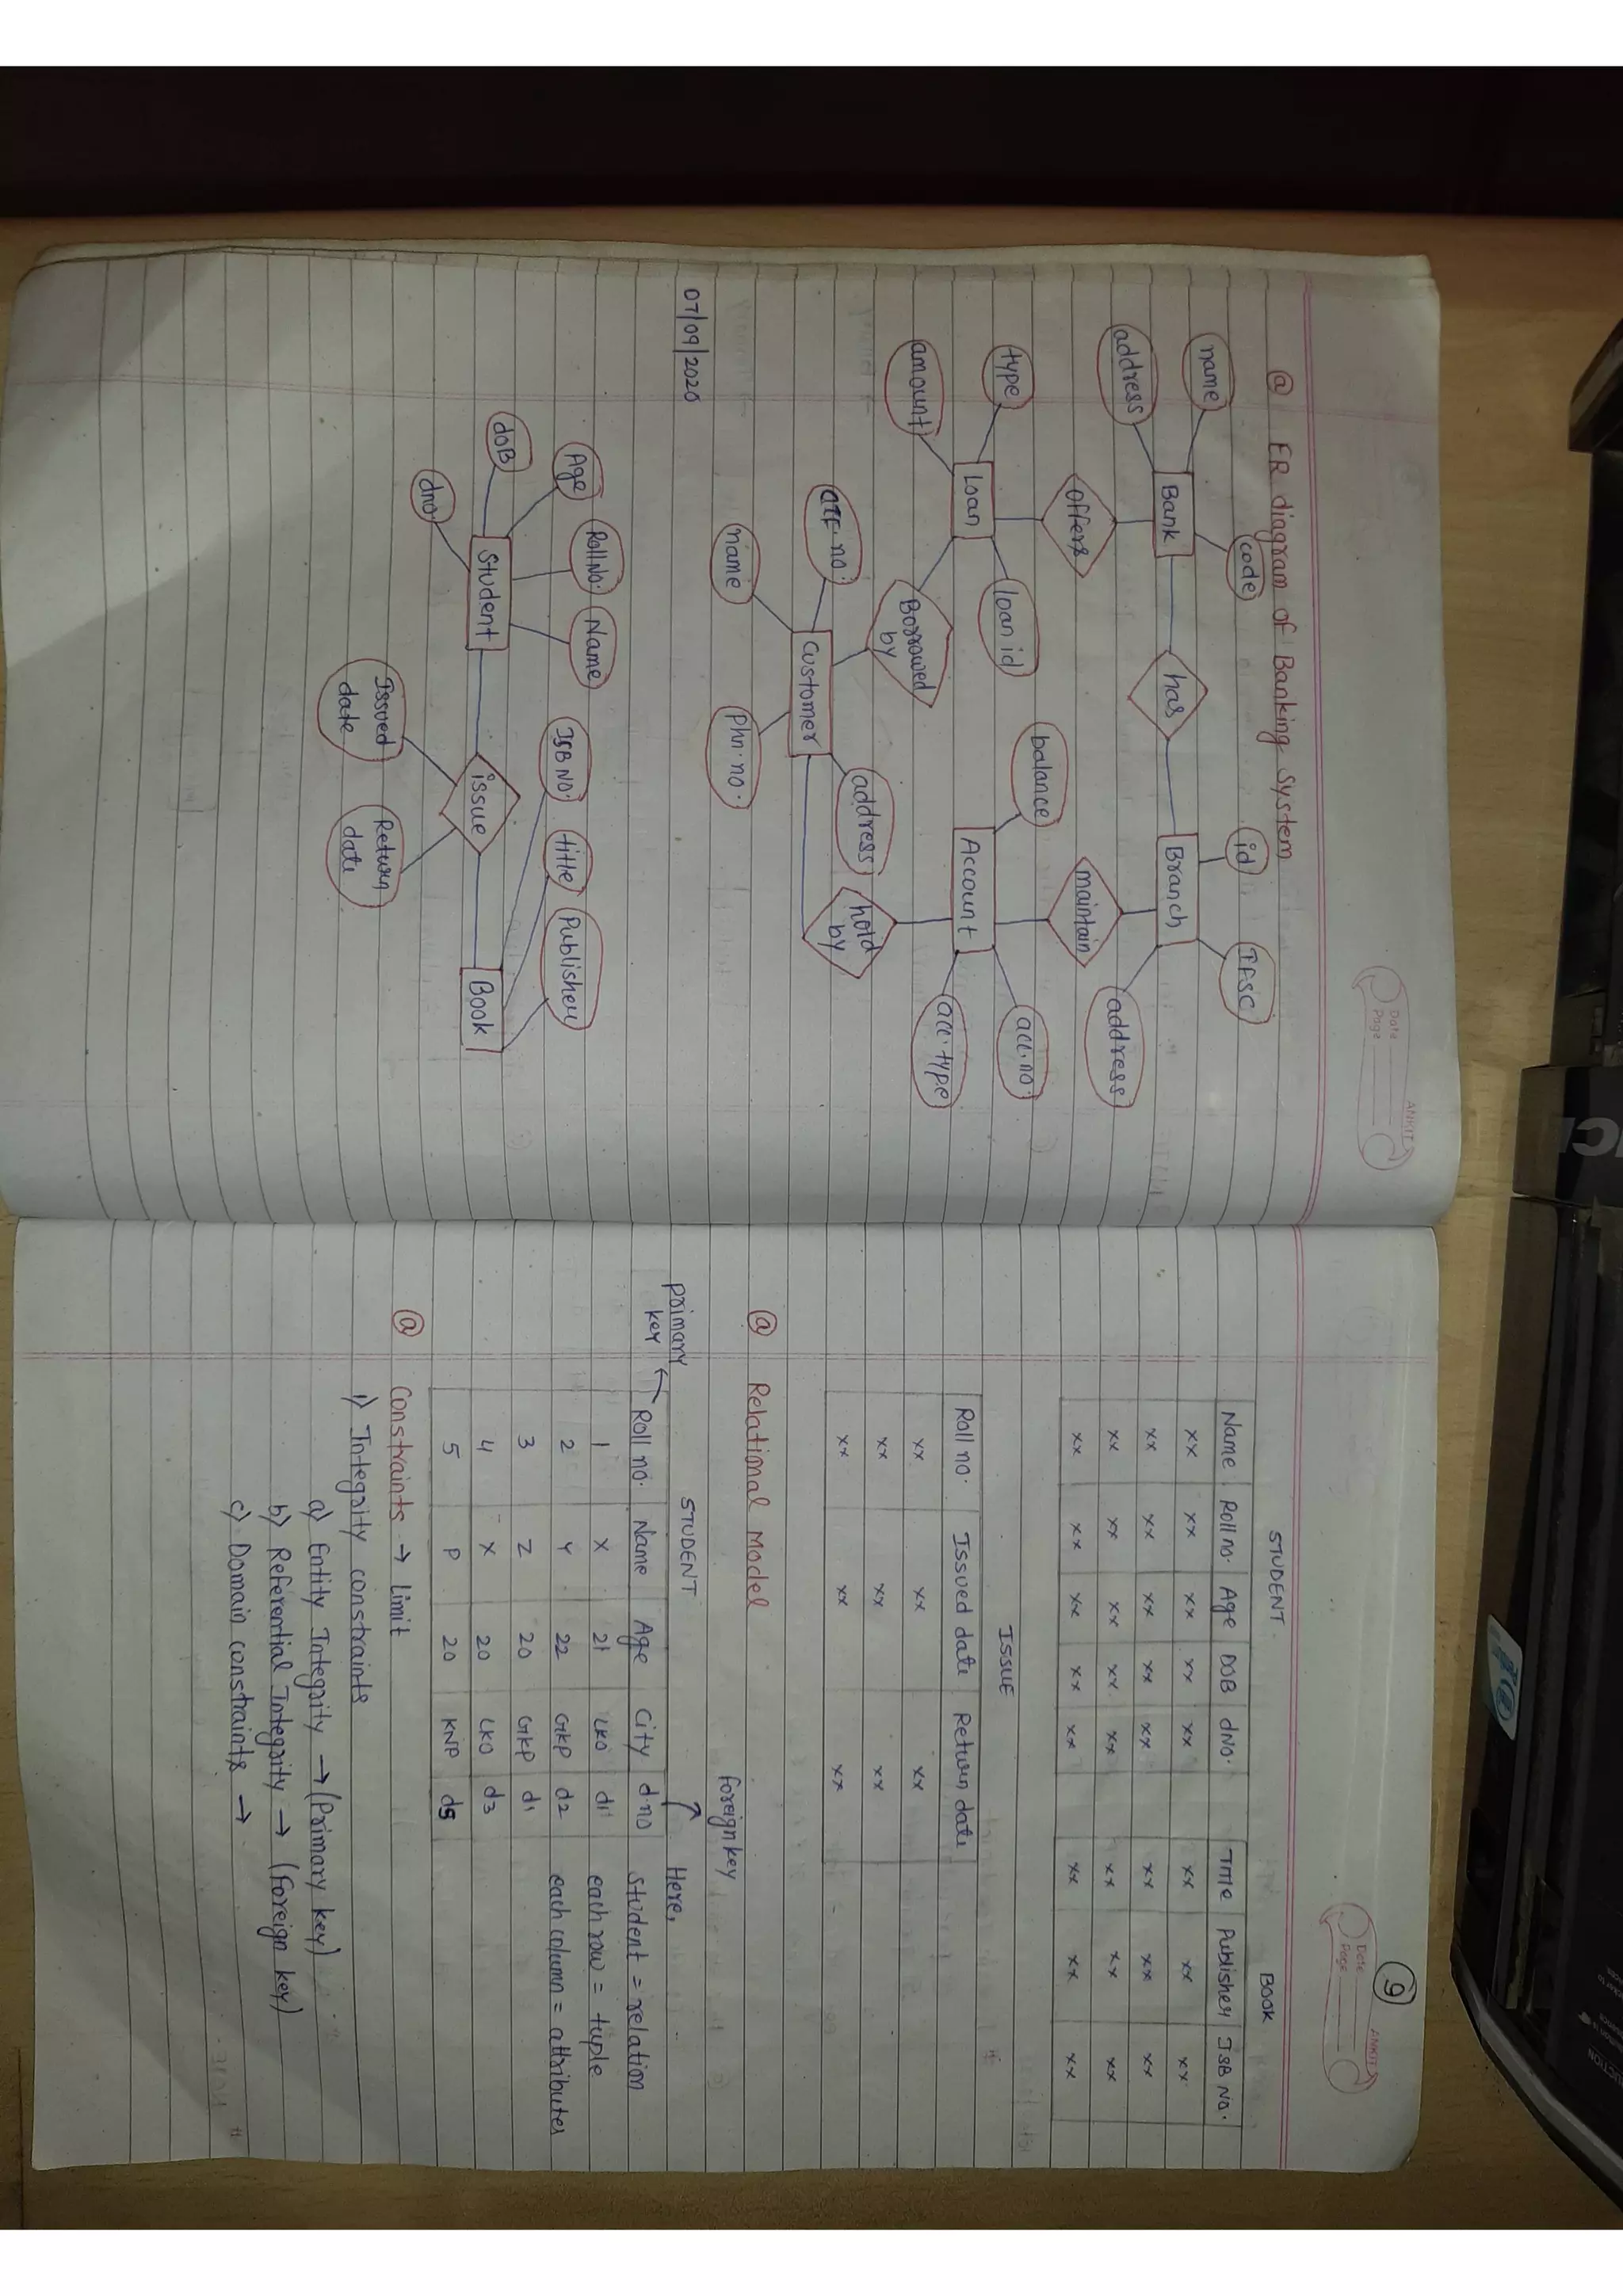 @ ER diagram of Banking System
name
code
id
IFSC
address
Bank
has
Branch
address
offers
maintain
type
loan id
balance
acc.no.
Loan
Account
amount
Borrowed
by
acc.type
hold
by
address
Customer
name
Phn.no.
07/09/2020
Age
Roll No.
Name
ISB NO.
title
Publisher
doB
Student
issue
Book
dno
Issued
date
Return
date
ANKIT
Date
Page
9
ANKIT
Date
Page
STUDENT. BOOK
Name Roll no. Age DOB dNO. Title Publisher ISB No.
xx xx xx xx xx xx xx xx
xx xx xx xx xx xx xx xx
xx xx xx xx xx xx xx xx
xx xx xx xx xx xx xx xx
ISSUE
Roll no. Issued date Return date
xx xx xx
xx xx xx
xx xx xx
@ Relational Model
foreign key
STUDENT Here,
primary
key
Roll no. Name Age City d.no Student = relation
1 X 21 LKO d1 each row = tuple
2 Y 22 GKP d2 each column = attributes
3 Z 20 GKP d1
4 X 20 LKO d3
5 P 20 KNP d5
@ Constraints → Limit
1) Integrity constraints
a) Entity Integrity → (Primary key)
b) Referential Integrity → (foreign key)
c) Domain constraints →